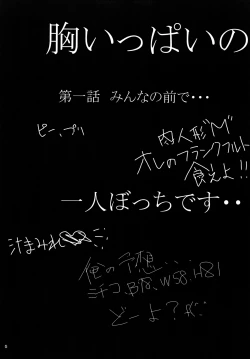 胸いっぱいの
第一話 みんなの前で・・・
ピー、プリ
肉人形"M"
オレのフランクフルト
食えよ!!
一人ぼっちです・・
汁まみれ
俺の予想...
ミチコ B78、W58、H81
どーよ?が、